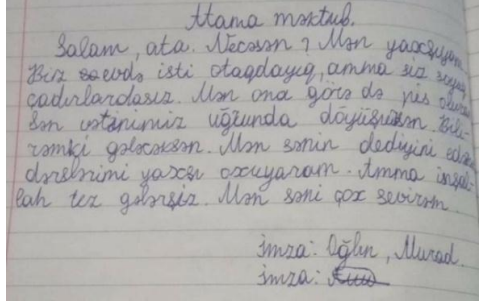 Atama məktub.
Salam, ata. Necəsən? Mən yaxşıyam
Biz səevdə isti otaqdayıq, amma siz soyuq
çadırlardasız. Mən ona görə də pis oluram
Sən vətənimiz uğrunda döyüşürsən. Bili-
rəmki gələcəksən. Mən sənin dediyini edəcəm
dərslərimi yaxşı oxuyaram. Amma inşal-
lah tez gələrsiz. Mən səni çox sevirəm.
İmza: Oğlın, Murad.
İmza: